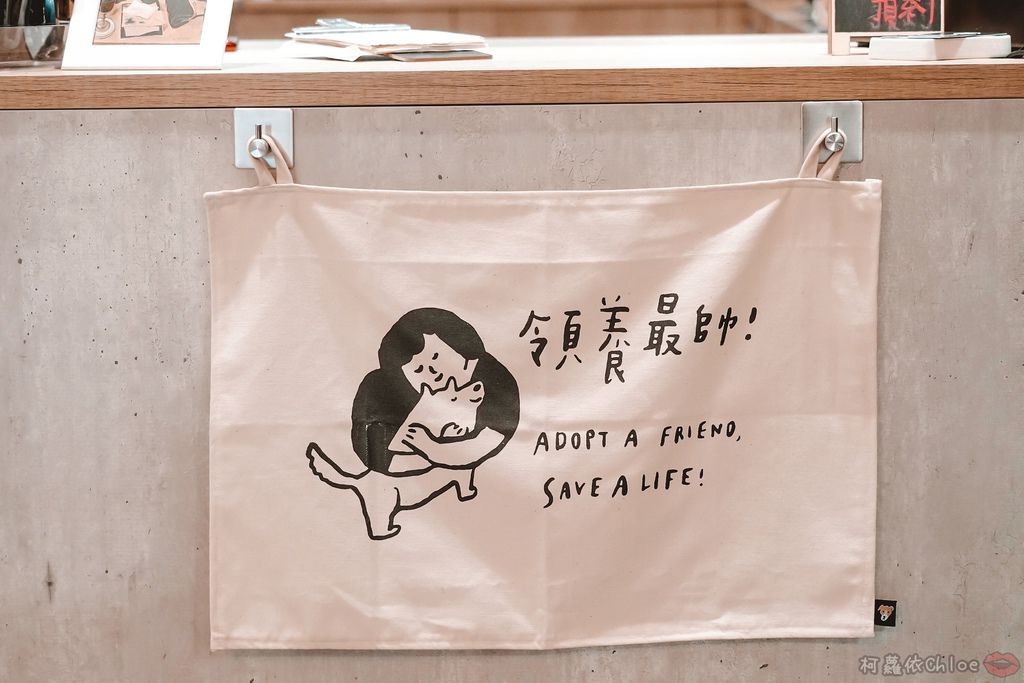 領養最帥!
ADOPT A FRIEND,
SAVE A LIFE!
柯蘿依Chloe